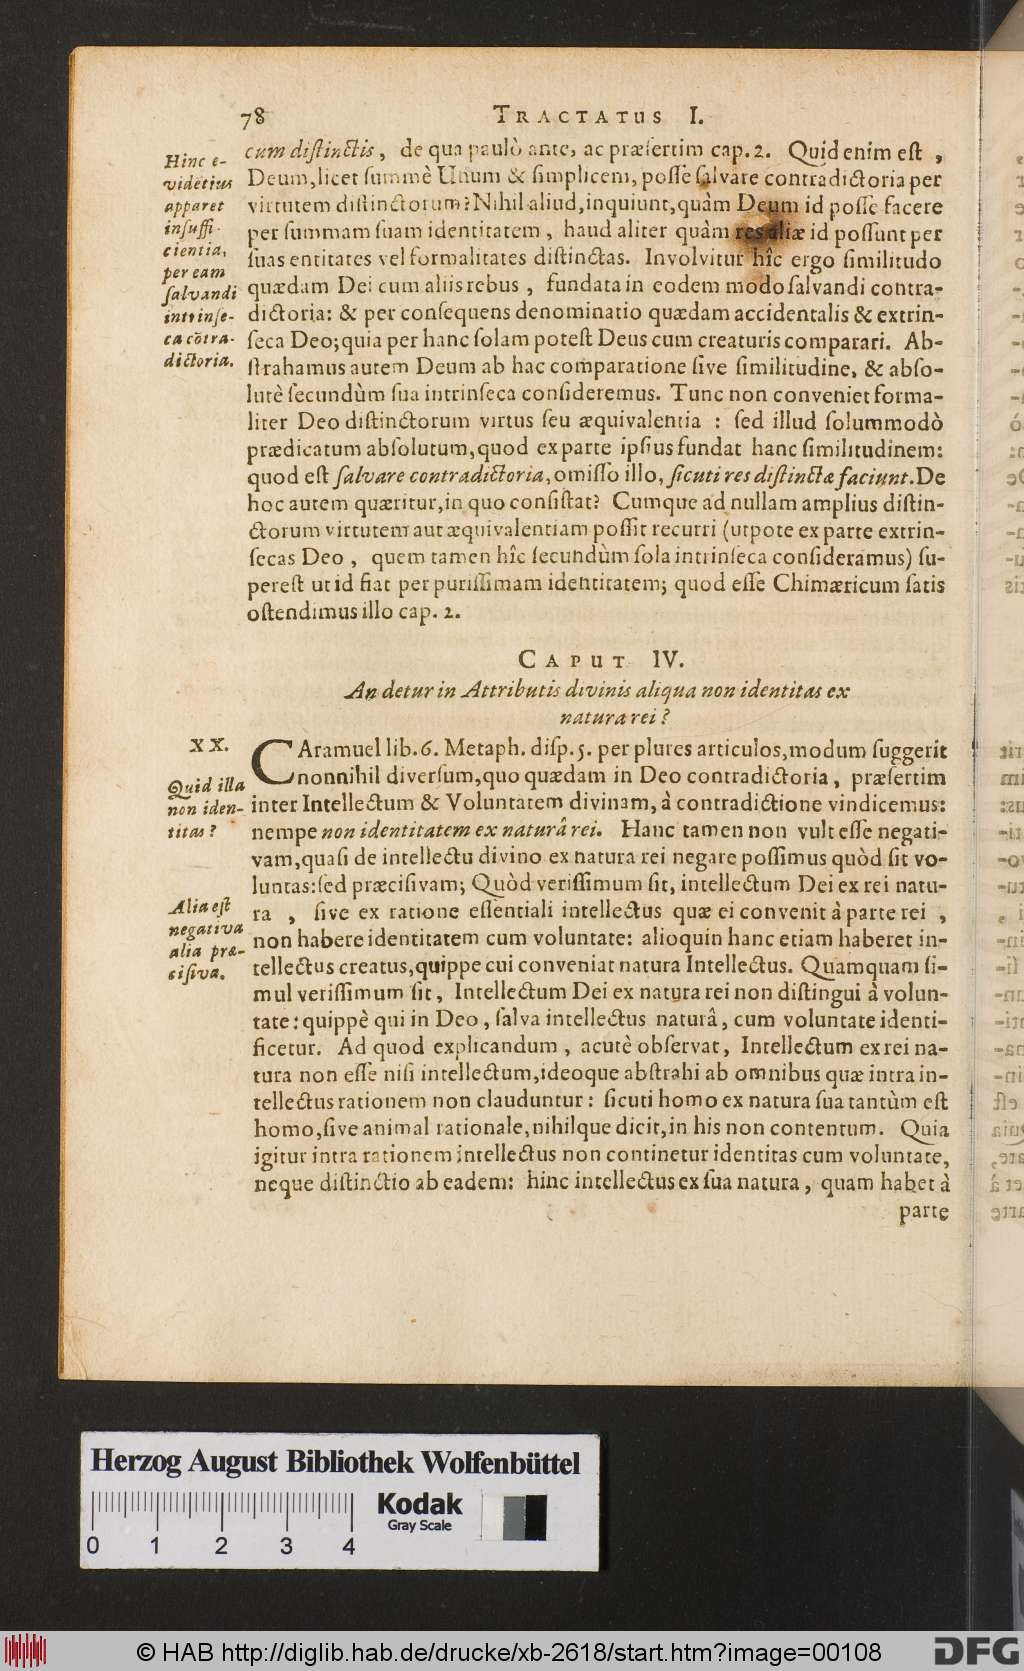 78 TRACTATUS I.
cum distinctis, de qua paulò ante, ac præsertim cap. 2. Quid enim est,
Deum, licet summè Unum & simplicem, posse salvare contradictoria per
virtutem distinctorum? Nihil aliud, inquiunt, quàm Deum id posse facere
per summam suam identitatem, haud aliter quàm res aliæ id possunt per
suas entitates vel formalitates distinctas. Involvitur hîc ergo similitudo
quædam Dei cum aliis rebus, fundata in eodem modo salvandi contra-
dictoria: & per consequens denominatio quædam accidentalis & extrin-
seca Deo; quia per hanc solam potest Deus cum creaturis comparari. Ab-
strahamus autem Deum ab hac comparatione sive similitudine, & abso-
lutè secundùm sua intrinseca consideremus. Tunc non conveniet forma-
liter Deo distinctorum virtus seu æquivalentia: sed illud solummodò
prædicatum absolutum, quod ex parte ipsius fundat hanc similitudinem:
quod est salvare contradictoria, omisso illo, sicuti res distinctæ faciunt. De
hoc autem quæritur, in quo consistat? Cumque ad nullam amplius distin-
ctorum virtutem aut æquivalentiam possit recurri (utpote ex parte extrin-
secas Deo, quem tamen hîc secundùm sola intrinseca consideramus) su-
perest ut id fiat per purissimam identitatem; quod esse Chimæricum satis
ostendimus illo cap. 2.
Hinc e-
videtius
apparet
insuffi-
cientia,
per eam
salvandi
intrinse-
ca cõtra-
dictoria.
CAPUT IV.
An detur in Attributis divinis aliqua non identitas ex
natura rei?
XX.
Quid illa
non iden-
titas?
Alia est
negativa
alia præ-
cisiva.
CAramuel lib. 6. Metaph. disp. 5. per plures articulos, modum suggerit
nonnihil diversum, quo quædam in Deo contradictoria, præsertim
inter Intellectum & Voluntatem divinam, à contradictione vindicemus:
nempe non identitatem ex naturâ rei. Hanc tamen non vult esse negati-
vam, quasi de intellectu divino ex natura rei negare possimus quòd sit vo-
luntas: sed præcisivam; Quòd verissimum sit, intellectum Dei ex rei natu-
ra, sive ex ratione essentiali intellectus quæ ei convenit à parte rei,
non habere identitatem cum voluntate: alioquin hanc etiam haberet in-
tellectus creatus, quippe cui conveniat natura Intellectus. Quamquam si-
mul verissimum sit, Intellectum Dei ex natura rei non distingui à volun-
tate: quippè qui in Deo, salva intellectus naturâ, cum voluntate identi-
ficetur. Ad quod explicandum, acutè observat, Intellectum ex rei na-
tura non esse nisi intellectum, ideoque abstrahi ab omnibus quæ intra in-
tellectus rationem non clauduntur: sicuti homo ex natura sua tantùm est
homo, sive animal rationale, nihilque dicit, in his non contentum. Quia
igitur intra rationem intellectus non continetur identitas cum voluntate,
neque distinctio ab eadem: hinc intellectus ex sua natura, quam habet à
parte
Herzog August Bibliothek Wolfenbüttel
0 1 2 3 4
Kodak
Gray Scale
© HAB http://diglib.hab.de/drucke/xb-2618/start.htm?image=00108
DFG